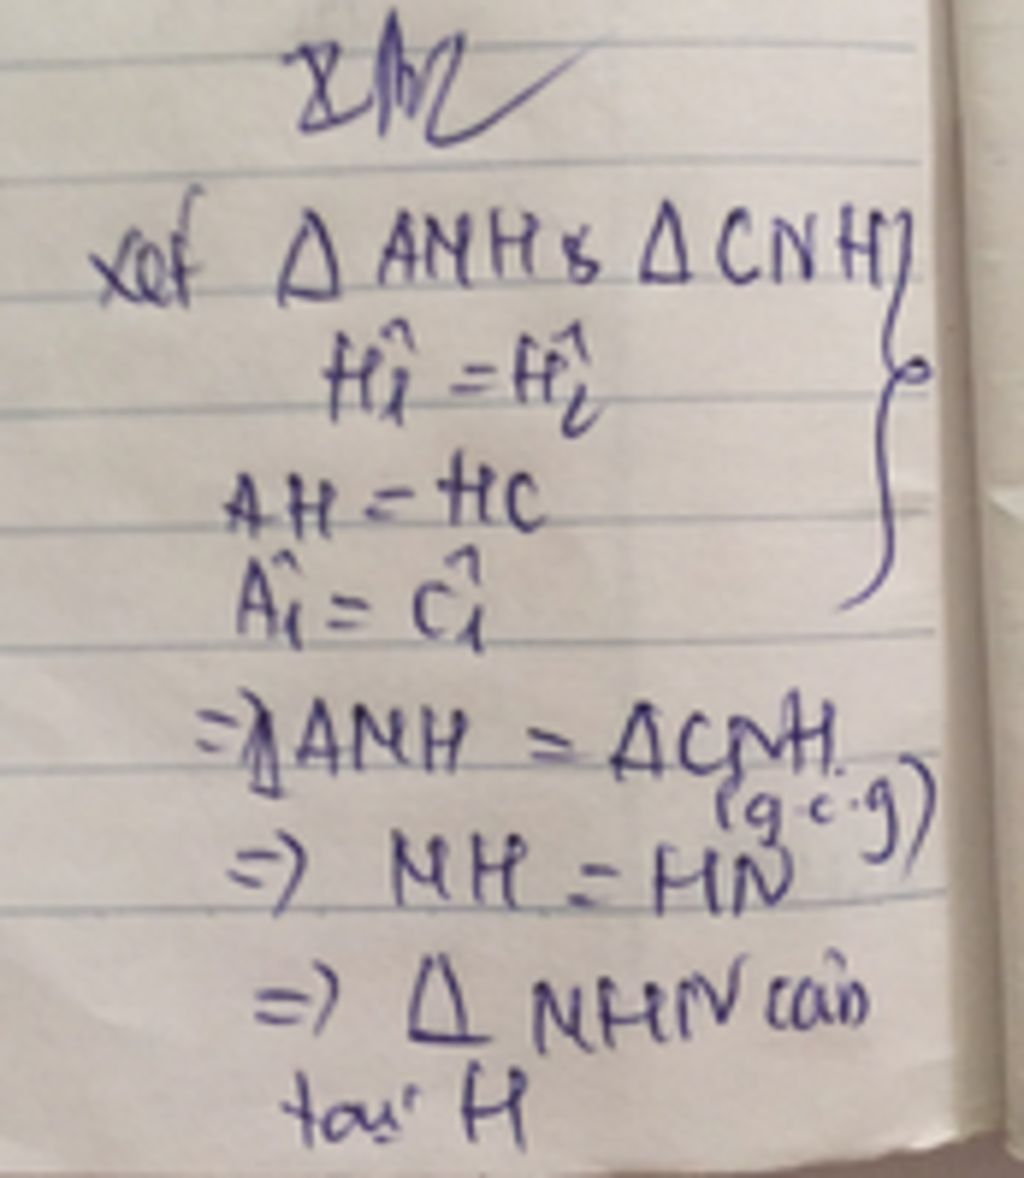 xét Δ AMH & Δ CNH
Ĥ₁ = Ĥ₂
AH = HC
Â₁ = Ĉ₁
=> Δ AMH = Δ CNH
(g.c.g)
=> MH = HN
=> Δ MHN cân
tại H